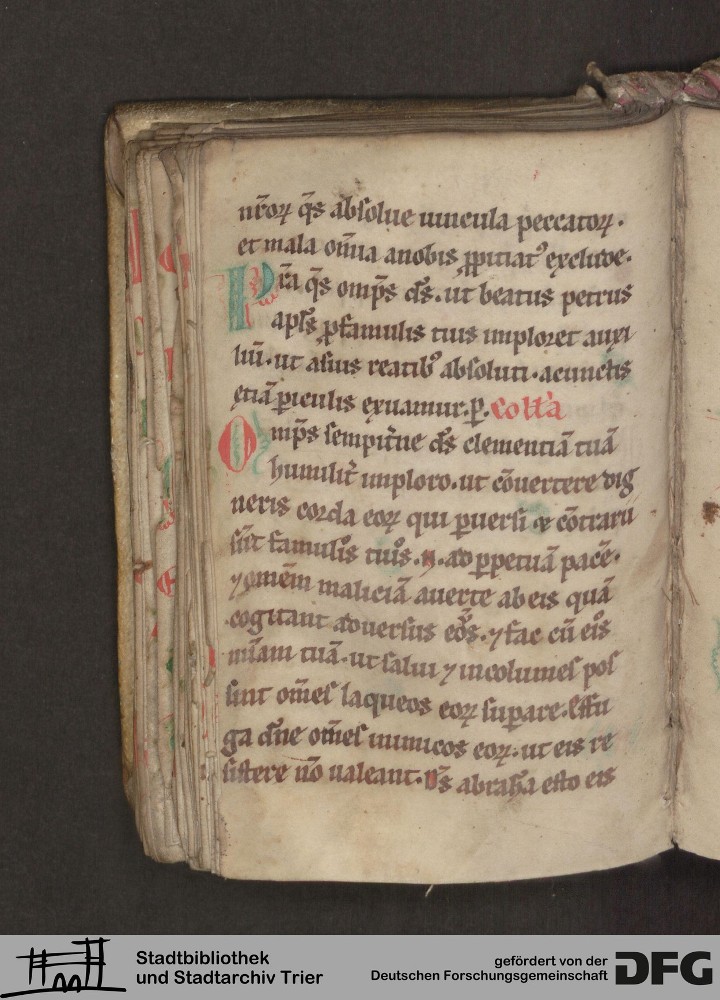 nr̃oꝝ q̃s absolue uincula peccatoꝝ.
et mala om̃ia a nobis ꝓpitiatꝰ exclude.
Pr̃a q̃s omp̃s d̃s. ut beatus petrus
apl̃s ꝓ famulis tuis imploret auxi
liũ. ut a suis reatibꝰ absoluti. a cunctis
etiã ꝑiculis exuamur. ꝑ. Coll̃a
Omp̃s sempit̃ne d̃s clementiã tuã
humilit̃ imploro. ut cõuertere dig
neris corda eoꝝ qui ꝑuersi & cõtrarii
sũt famulo᷒s tuo᷒s. n. ad ꝑpetuã pacẽ.
⁊ om̃em maliciã auerte ab eis quã
cogitant aduersus eo᷒s. ⁊ fac cũ eis
mĩam tuã. ut salui ⁊ incolumes pos
sint om̃es laqueos eoꝝ suꝑare. Effu
ga dñe om̃es inimicos eoꝝ. ut eis re
sistere nõ ualeant. D̃s abrahã esto eis
Stadtbibliothek
und Stadtarchiv Trier
gefördert von der
Deutschen Forschungsgemeinschaft
DFG